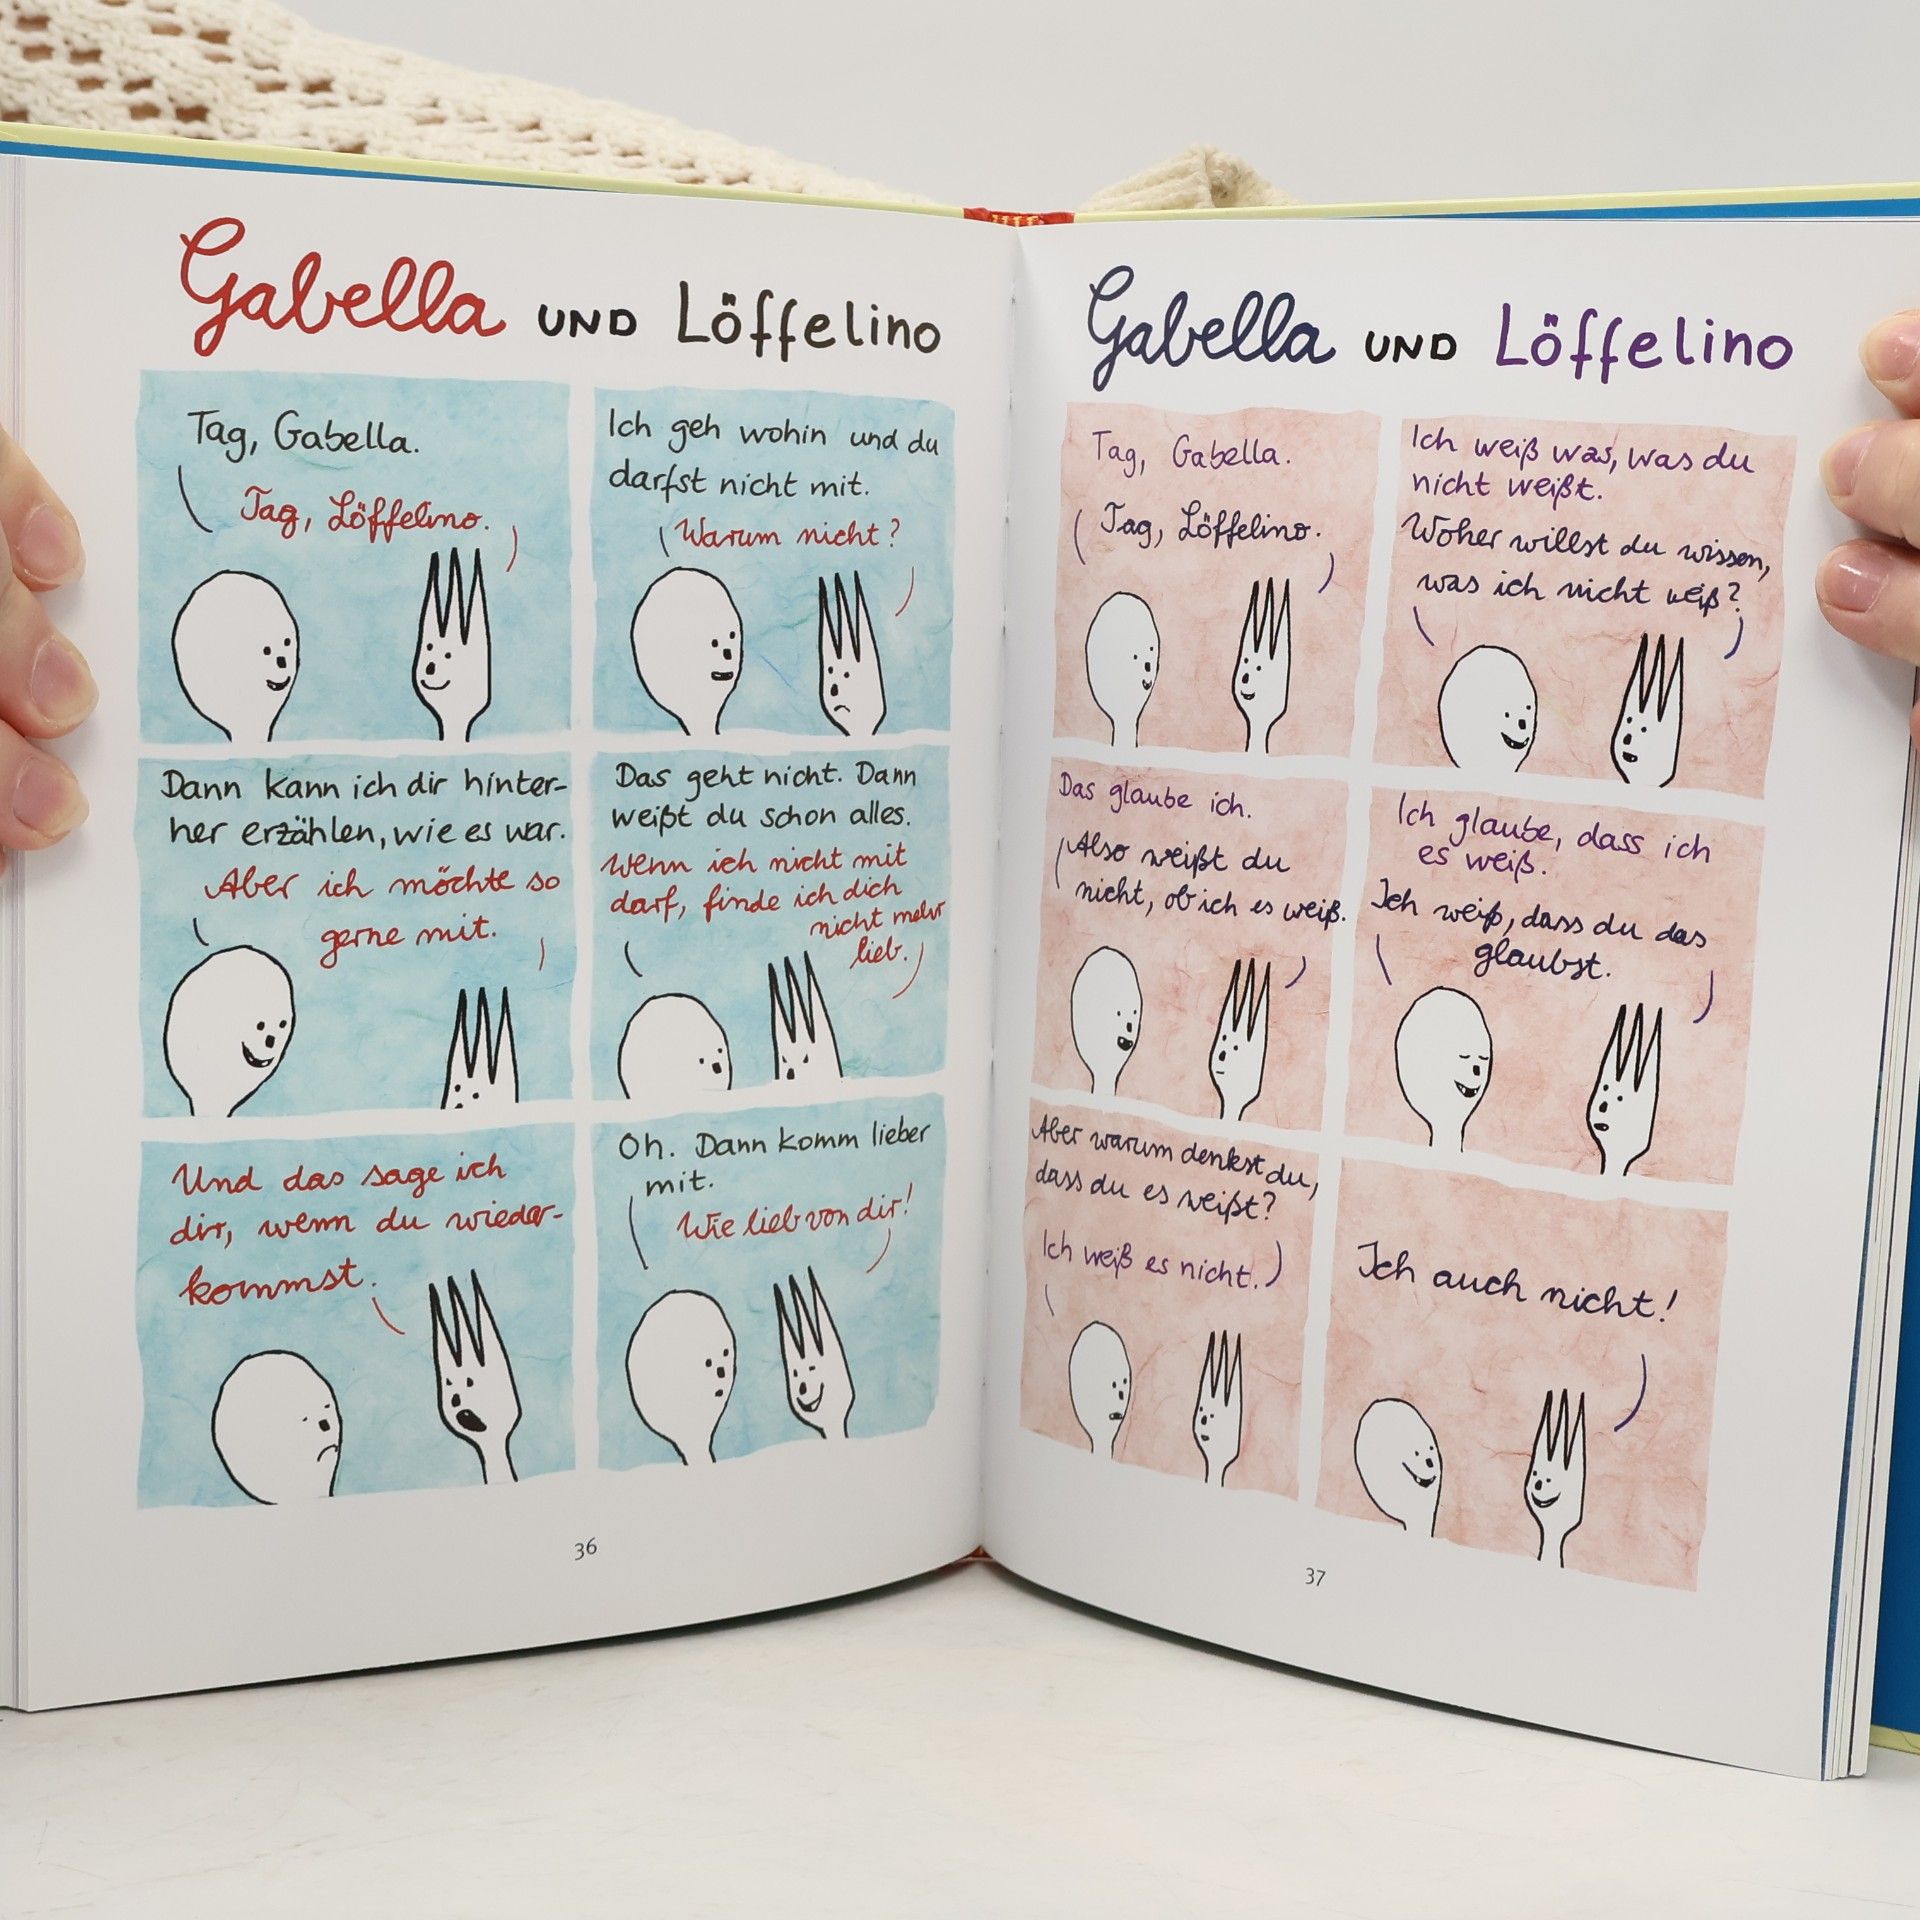 Gabella UND Löffelino
Tag, Gabella.
Tag, Löffelino.
Ich geh wohin und du
darfst nicht mit.
Warum nicht?
Dann kann ich dir hinter-
her erzählen, wie es war.
Aber ich möchte so
gerne mit.
Das geht nicht. Dann
weißt du schon alles.
Wenn ich nicht mit
darf, finde ich dich
nicht mehr
lieb.
Und das sage ich
dir, wenn du wieder-
kommst.
Oh. Dann komm lieber
mit.
Wie lieb von dir!
36
Gabella UND Löffelino
Tag, Gabella.
Tag, Löffelino.
Ich weiß was, was du
nicht weißt.
Woher willst du wissen,
was ich nicht weiß?
Das glaube ich.
Also weißt du
nicht, ob ich es weiß.
Ich glaube, dass ich
es weiß.
Ich weiß, dass du das
glaubst.
Aber warum denkst du,
dass du es weißt?
Ich weiß es nicht.
Ich auch nicht!
37